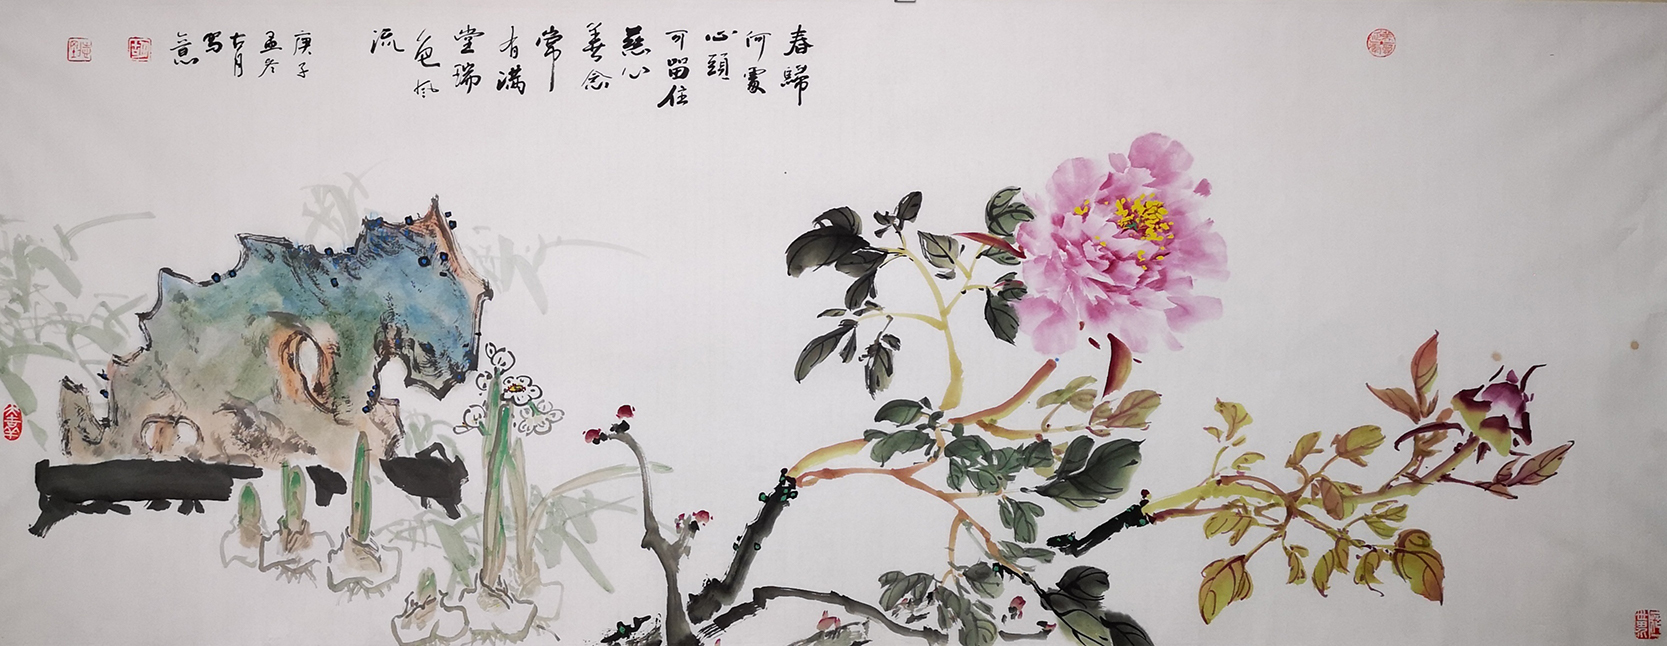 春歸
何處
心頭
可留住
慈心
善念
常
有滿
堂瑞
色風
流
庚子
孟冬
古月
寫
意